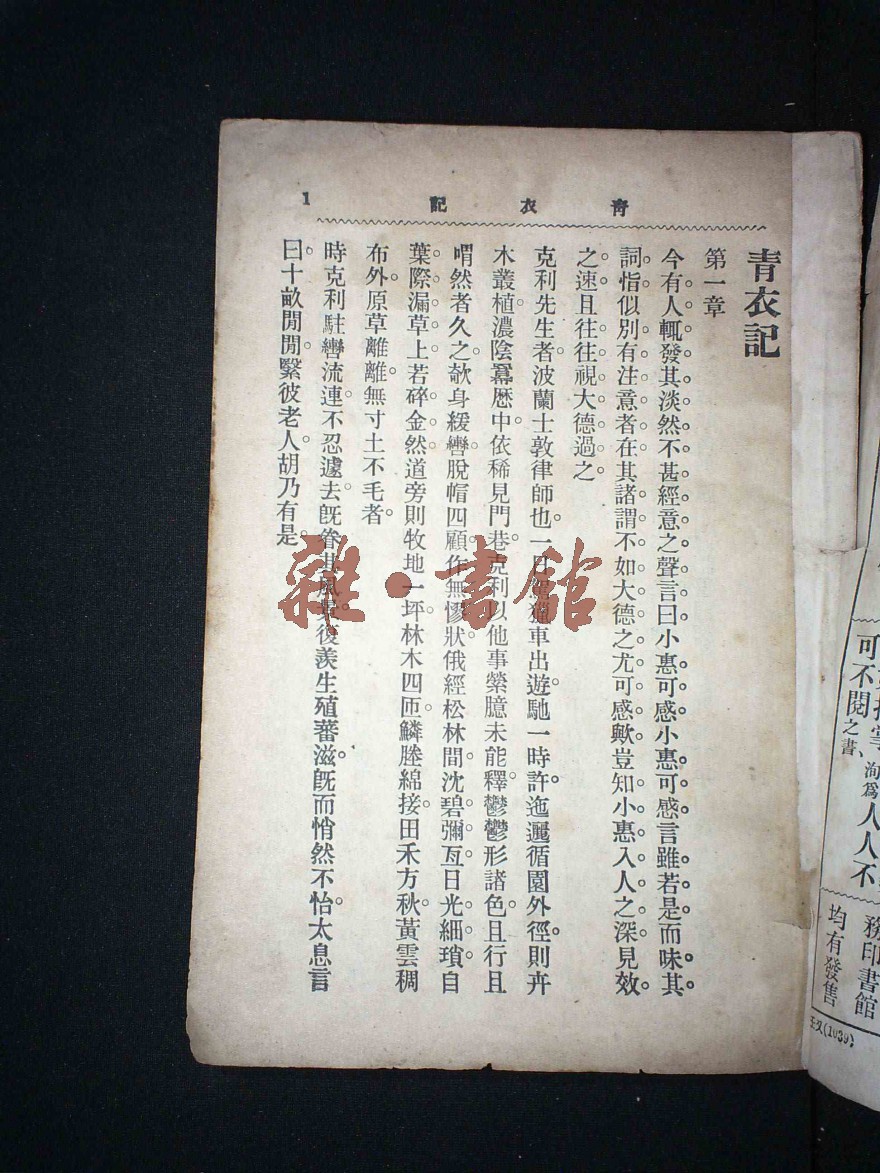 青衣記
1
青衣記
第一章
今有人輒發其淡然不甚經意之聲言曰小惠可感小惠可感言雖若是而味其
詞恉似別有注意者在其諸謂不如大德之尤可感歟豈知小惠入人之深見效
之速且往往視大德過之
克利先生者波蘭士敦律師也一日駕獵車出遊馳一時許迤邐循園外徑則卉
木叢植濃陰羃歷中依稀見門巷克利以他事縈臆未能釋鬱鬱形諸色且行且
喟然者久之欹身緩轡脫帽四顧作無憀狀俄經松林間沈碧彌亙日光細瑣自
葉際漏草上若碎金然道旁則牧地一坪林木四匝鱗塍綿接田禾方秋黃雲稠
布外原草離離無寸土不毛者
時克利駐轡流連不忍遽去既眷其風景復羨生殖蕃滋既而悄然不怡太息言
曰十畝閒閒繄彼老人胡乃有是
雜·書館
可不閱之書
洵爲人人不
務印書館
均有發售
(1039)